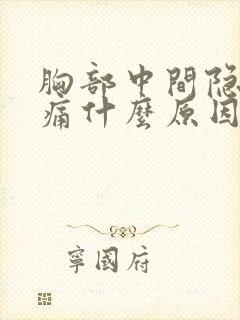 胸部中間隐
痛什麼原因
寧國府